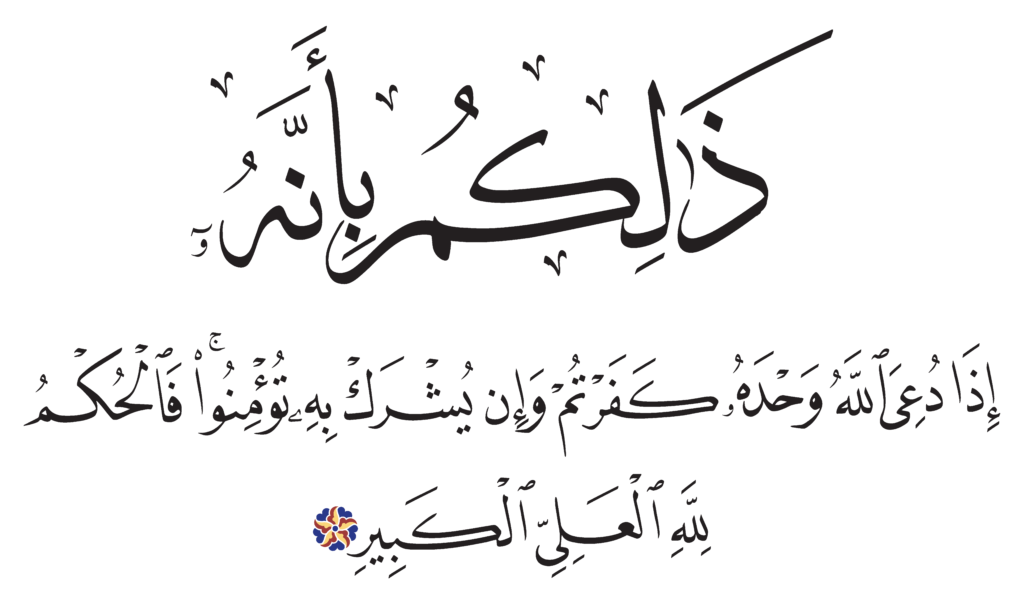 ذَٰلِكُم بِأَنَّهُۥٓ
إِذَا دُعِىَ ٱللَّهُ وَحْدَهُۥ كَفَرْتُمْ وَإِن يُشْرَكْ بِهِۦ تُؤْمِنُوا۟ ۚ فَٱلْحُكْمُ
لِلَّهِ ٱلْعَلِىِّ ٱلْكَبِيرِ